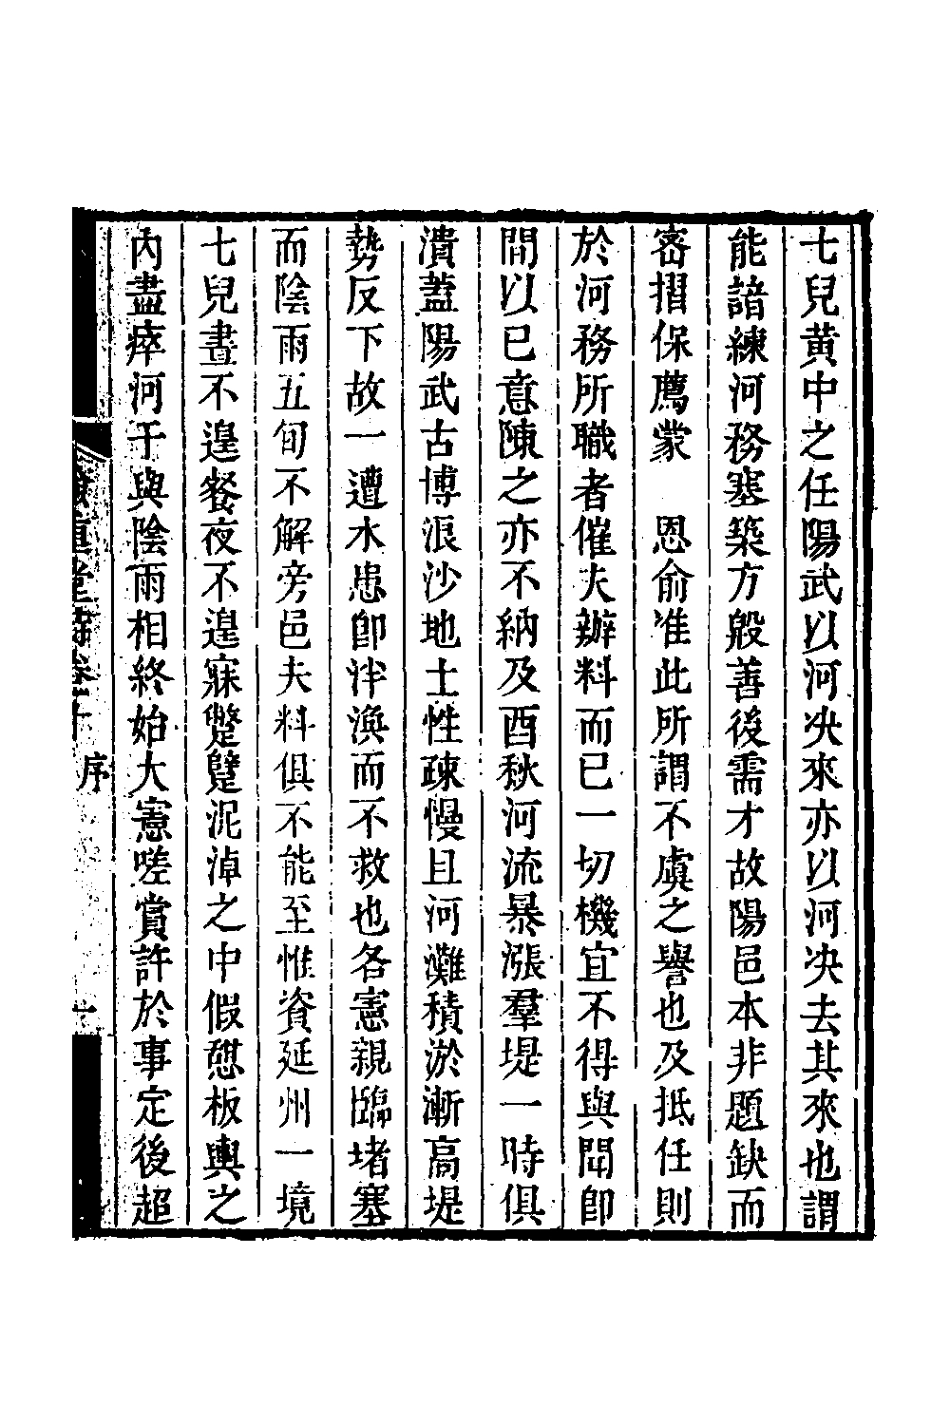 七兒黄中之任陽武以河决來亦以河决去其來也謂
能諳練河務塞築方殷善後需才故陽邑本非題缺而
宻摺保薦蒙　恩俞准此所謂不虞之譽也及抵任則
於河務所職者催夫辦料而已一切機宜不得與聞卽
間以已意陳之亦不納及酉秋河流暴漲羣堤一時俱
潰蓋陽武古博浪沙地土性疎慢且河灘積淤漸高堤
勢反下故一遭水患卽泮渙而不救也各憲親臨堵塞
而陰雨五旬不解旁邑夫料俱不能至惟資延州一境
七兒晝不遑餐夜不遑寐蹩躄泥淖之中假憇板輿之
內盡瘁河干與陰雨相終始大憲嗟賞許於事定後超
直堂 卷十 序 一